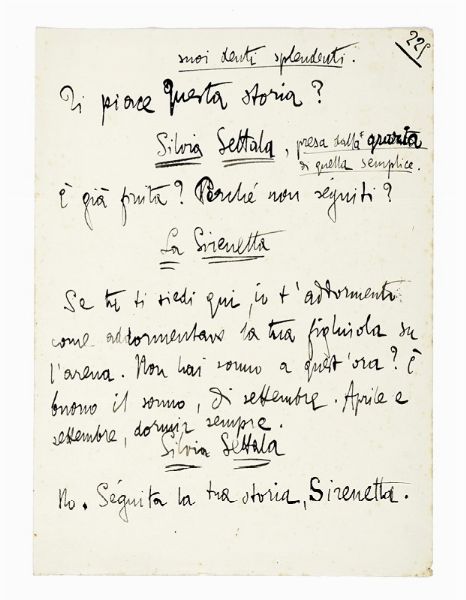 225
suoi denti splendenti.
Ti piace questa storia?
Silvia Settala, presa dalla grazia
di quella semplice.
È già finita? Perché non séguiti?
La Sirenetta
Se tu ti siedi qui, io t'addormento
come addormentavo la tua figliuola su
l'arena. Non hai sonno a quest'ora? È
buono il sonno, di settembre. Aprile e
settembre, dormir sempre.
Silvia Settala
No. Séguita la tua storia, Sirenetta.